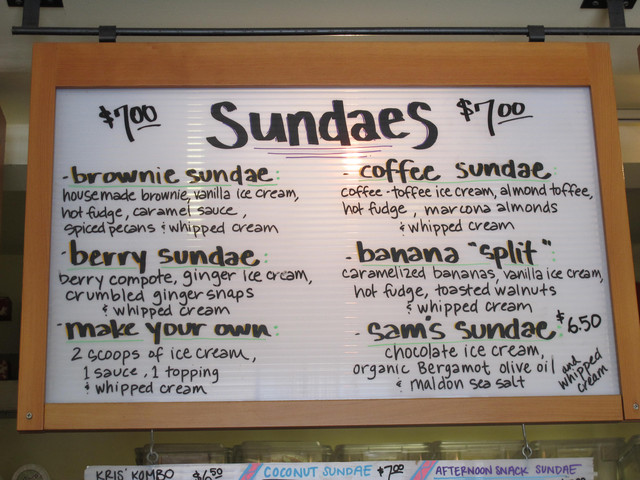 $7.00 Sundaes $7.00
- brownie sundae:
housemade brownie, vanilla ice cream,
hot fudge, caramel sauce,
spiced pecans & whipped cream
- berry sundae:
berry compote, ginger ice cream,
crumbled gingersnaps
& whipped cream
- make your own:
2 scoops of ice cream,
1 sauce, 1 topping
& whipped cream
- coffee sundae:
coffee-toffee ice cream, almond toffee,
hot fudge, marcona almonds
& whipped cream
- banana "split":
caramelized bananas, vanilla ice cream,
hot fudge, toasted walnuts
& whipped cream
- sam's sundae: $6.50
chocolate ice cream,
organic Bergamot olive oil
& maldon sea salt
and
whipped
cream
KRIS' KOMBO $6.50 COCONUT SUNDAE $7.00 AFTERNOON SNACK SUNDAE